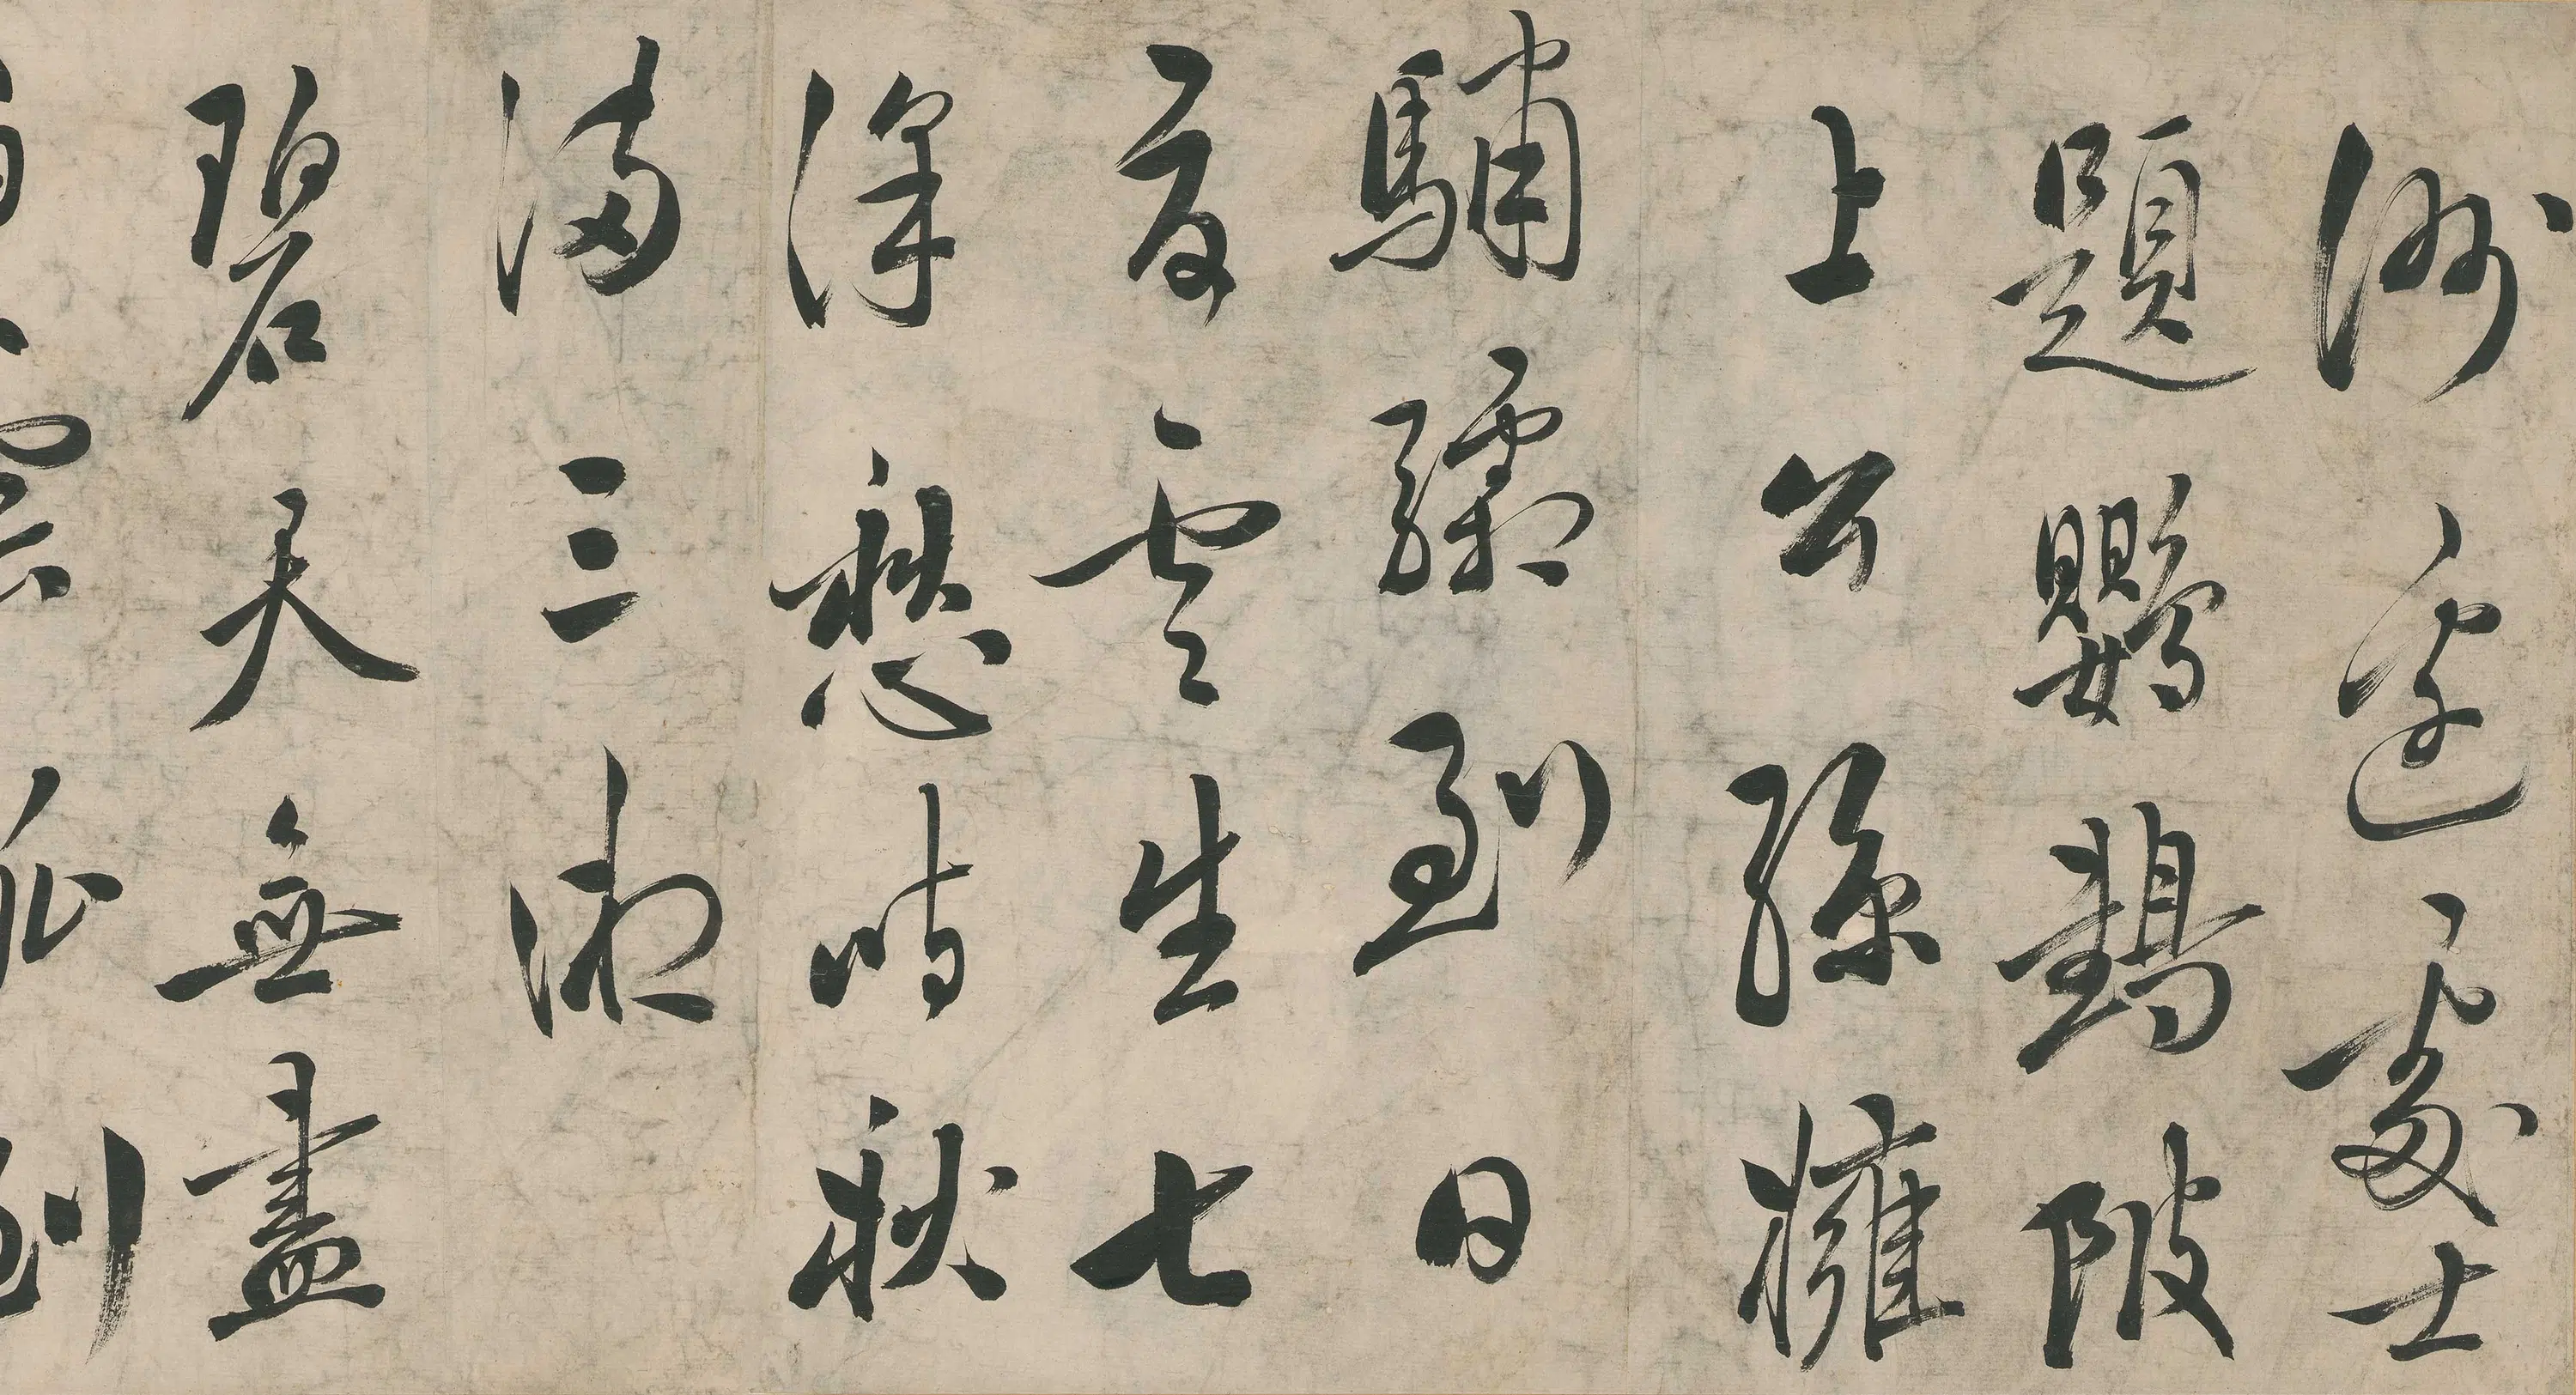 洲邊處士
題鸚鵡陂
上公孫擁
驌驦到日
夏雲生七
澤愁時秋
滿三湘
碧天無盡